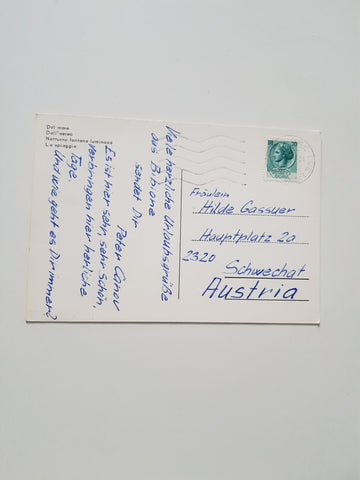 Dal mare
Dall'aereo
Notturno fontana luminosa
La spiaggia
Viele herzliche Urlaubsgrüße
aus Bibione
sendet Dir
Peter
Es ist hier sehr, sehr schön,
verbringen hier herrliche
Tage.
Und wie geht es Dir immer?
Fräulein
Hilde Gassner
Hauptplatz 2a
2320
Schwechat
Austria